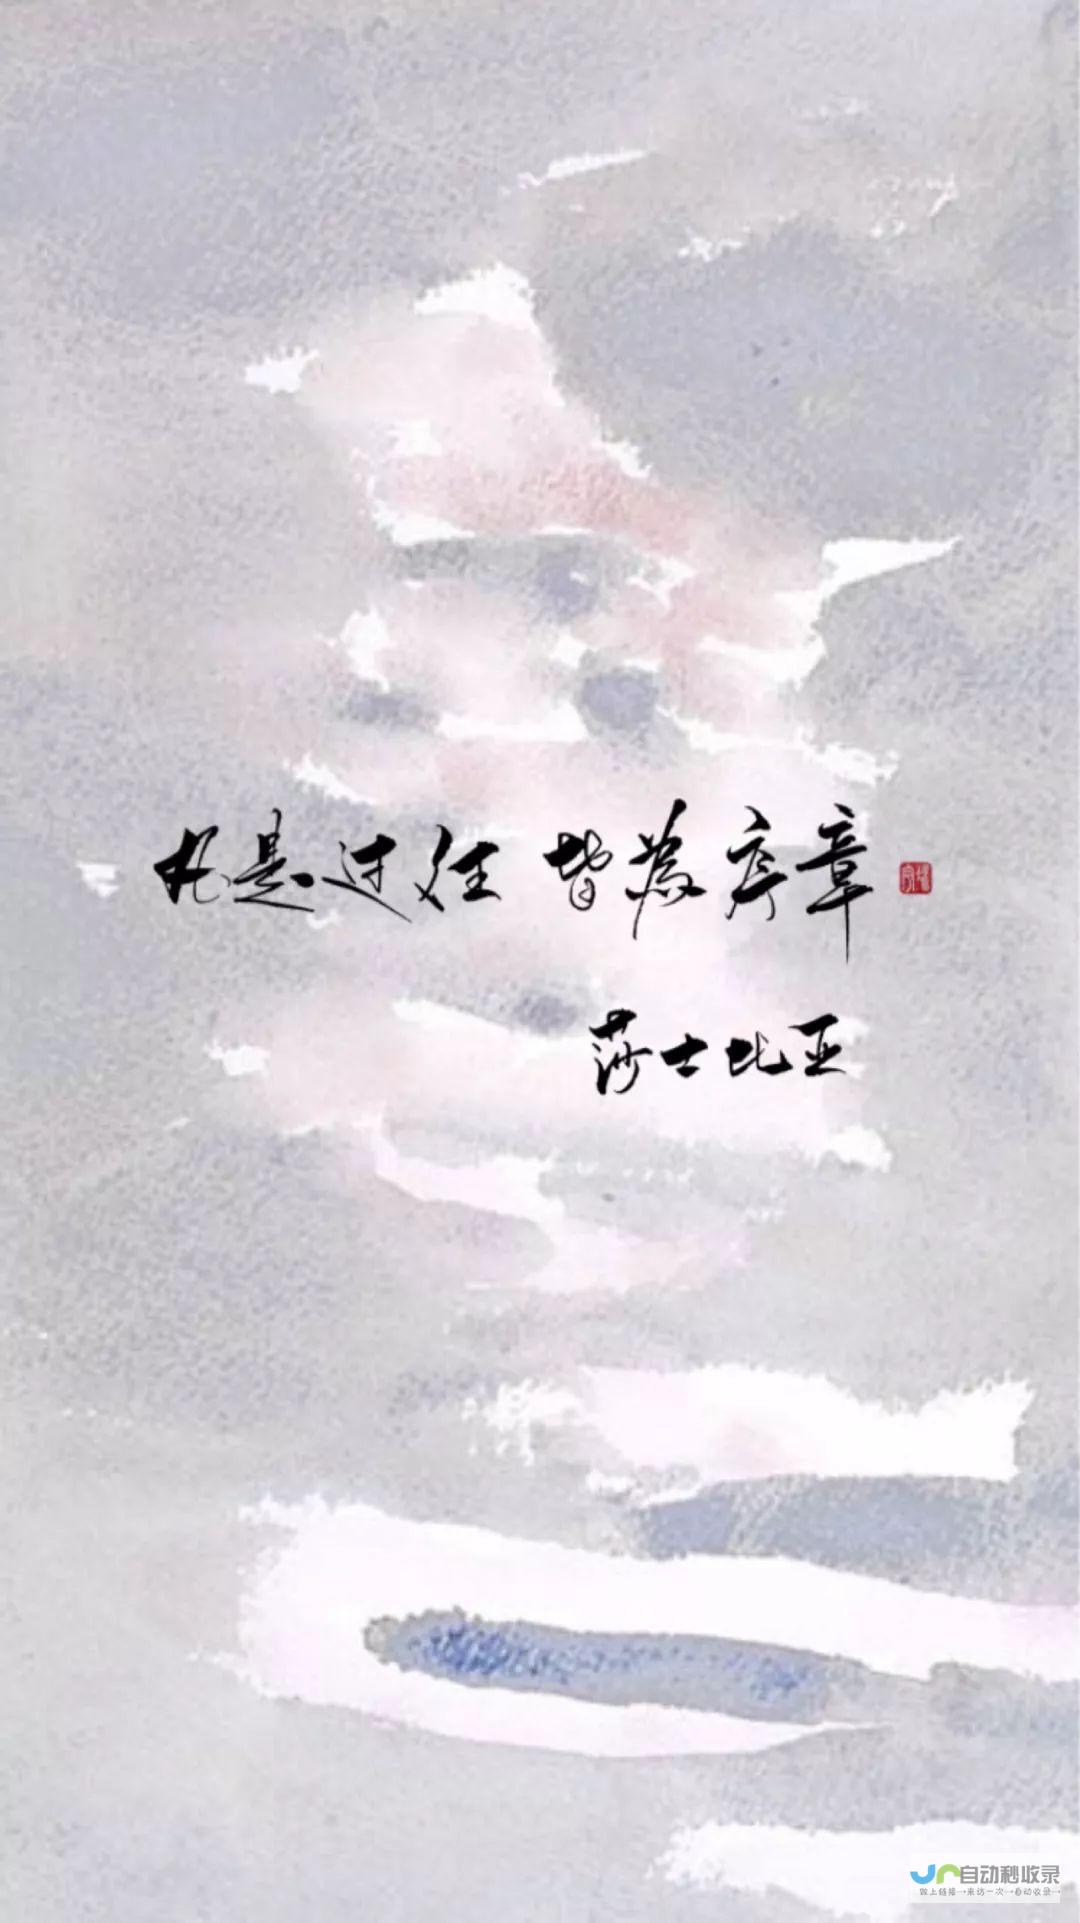 凡是过往 皆為序章
莎士比亚
自动秒收录
做上链接→来访一次→自动收录→